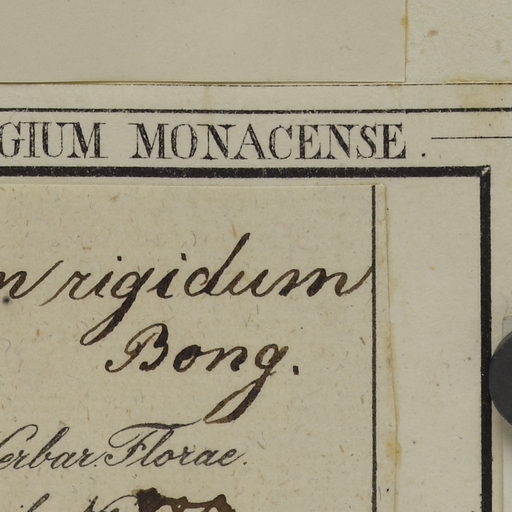 GIUM MONACENSE.
m rigidum
Bong.
Herbar. Florae.